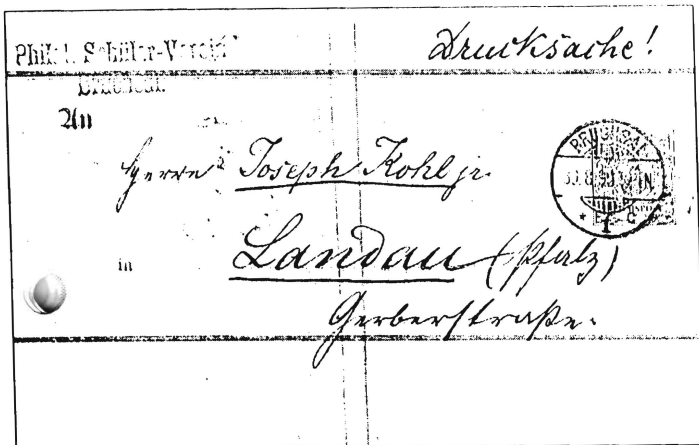 Philat. Schüler-Verein
Bruchsal.
Drucksache!
An
Herrn Joseph Kohl jr.
in Landau (Pfalz)
Gerberstraße.
BRUCHSAL
1 c